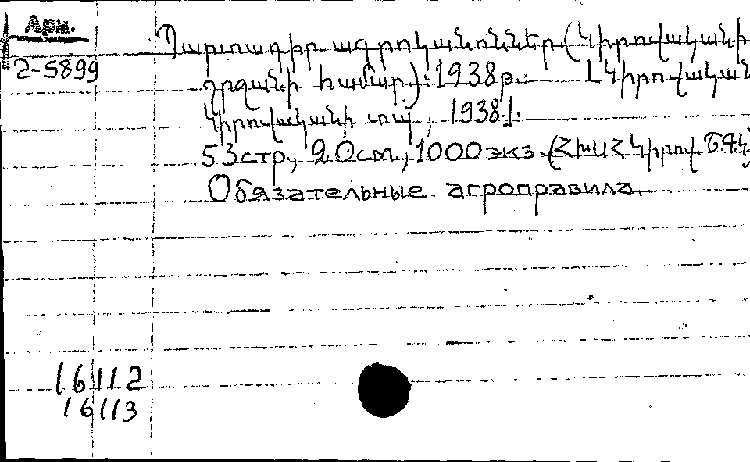 Арм.
2-5899
Պարտադիր ագրոկանոններ (Կիրովականի
շրջանի համար): 1938թ. [Կիրովական
Կիրովականի տպ, 1938]:
53 стр, 20 см, 1000 экз (ՀԽՍՀ Կիրով
Обязательные агроправила.
16112
16113